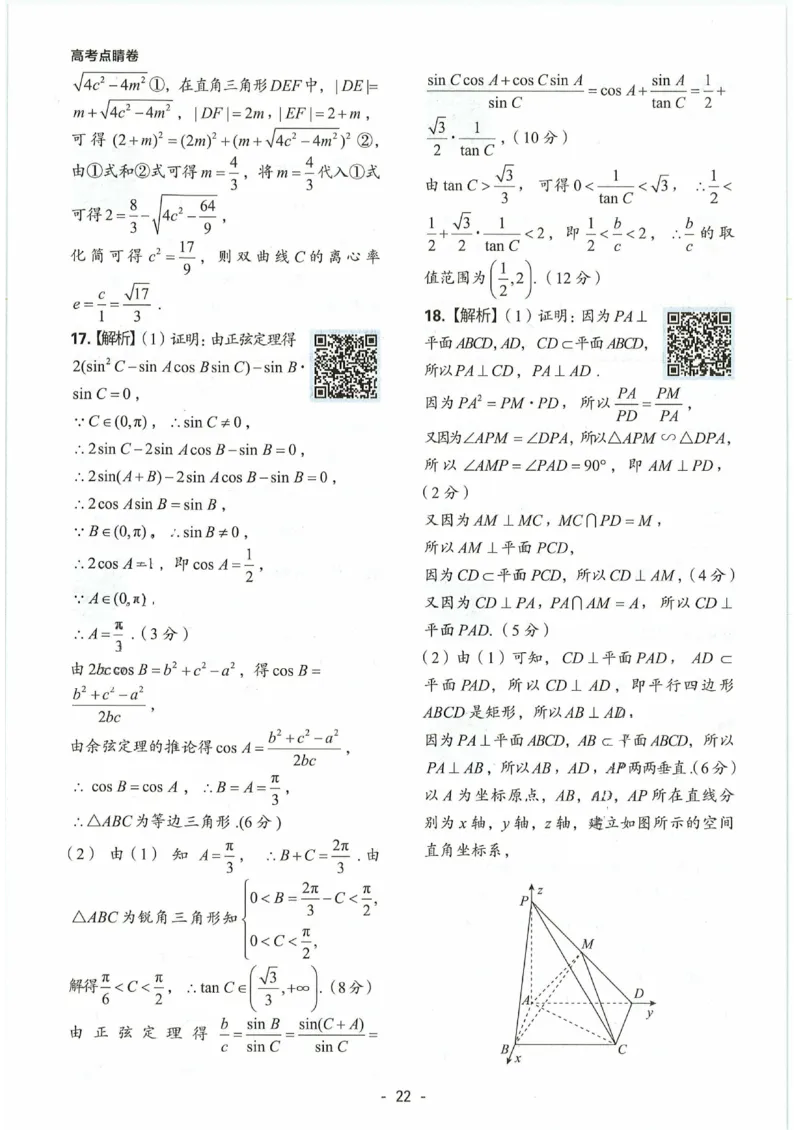 高考点睛卷
√(4c²-4m²)①,在直角三角形DEF中,|DE|=
m+√(4c²-4m²),|DF|=2m,|EF|=2+m,
可得(2+m)²=(2m)²+(m+√(4c²-4m²))² ②,
由①式和②式可得m=4/3,将m=4/3代入①式
可得2=8/3-√(4c²-64/9),
化简可得c²=17/9,则双曲线C的离心率
e=c/1=√17/3.
17.【解析】(1)证明:由正弦定理得
2(sin²C-sin Acos Bsin C)-sin B·
sin C=0,
∵C∈(0,π),∴sin C≠0,
∴2sin C-2sin Acos B-sin B=0,
∴2sin(A+B)-2sin Acos B-sin B=0,
∴2cos Asin B=sin B,
∵B∈(0,π)。∴sin B≠0,
∴2cos A=1,即cos A=1/2,
∵A∈(0,π).
∴A=π/3.(3分)
由2bccos B=b²+c²-a²,得cos B=
(b²+c²-a²)/2bc,
由余弦定理的推论得cos A=(b²+c²-a²)/2bc,
∴cos B=cos A,∴B=A=π/3,
∴△ABC为等边三角形.(6分)
(2)由(1)知A=π/3,∴B+C=2π/3.由
△ABC为锐角三角形知{0<B=2π/3-C<π/2,
0<C<π/2,
解得π/6<C<π/2,∴tan C∈(√3/3,+∞).(8分)
由正弦定理得b/c=sin B/sin C=sin(C+A)/sin C=
(sin Ccos A+cos Csin A)/sin C=cos A+sin A/tan C=1/2+
√3/2·1/tan C,(10分)
由tan C>√3/3,可得0<1/tan C<√3,∴1/2<
1/2+√3/2·1/tan C<2,即1/2<b/c<2,∴b/c的取
值范围为(1/2,2).(12分)
18.【解析】(1)证明:因为PA⊥
平面ABCD,AD,CD⊂平面ABCD,
所以PA⊥CD,PA⊥AD.
因为PA²=PM·PD,所以PA/PD=PM/PA,
又因为∠APM=∠DPA,所以△APM∽△DPA,
所以∠AMP=∠PAD=90°,即AM⊥PD,
(2分)
又因为AM⊥MC,MC∩PD=M,
所以AM⊥平面PCD,
因为CD⊂平面PCD,所以CD⊥AM,(4分)
又因为CD⊥PA,PA∩AM=A,所以CD⊥
平面PAD.(5分)
(2)由(1)可知,CD⊥平面PAD,AD⊂
平面PAD,所以CD⊥AD,即平行四边形
ABCD是矩形,所以AB⊥AD,
因为PA⊥平面ABCD,AB⊂平面ABCD,所以
PA⊥AB,所以AB,AD,AP两两垂直.(6分)
以A为坐标原点,AB,AD,AP所在直线分
别为x轴,y轴,z轴,建立如图所示的空间
直角坐标系,
z
P
M
A
D
y
B
C
x
- 22 -